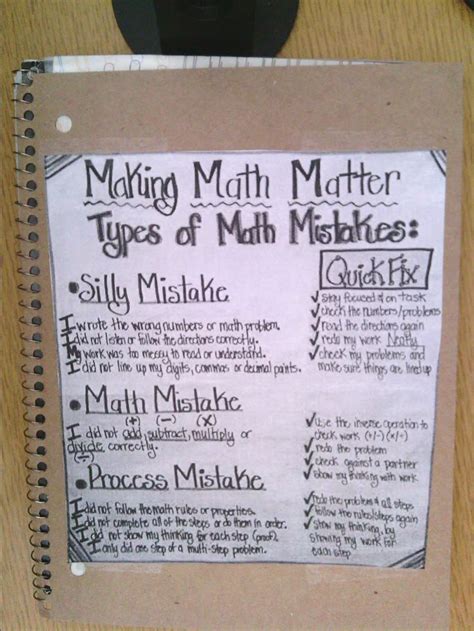 Making Math Matter
Types of Math Mistakes:
Quick Fix
• Silly Mistake
I wrote the wrong numbers or math problem.
I did not listen or follow the directions correctly.
My work was too messy to read or understand.
I did not line up my digits, commas or decimal points.
✓ stay focused of on task
✓ check the numbers/problems
✓ read the directions again
✓ redo my work Neatly
✓ check my problems and
make sure things are lined up
• Math Mistake
(+) (-) (x)
I did not add, subtract, multiply or
divide correctly.
(÷)
✓ Use the inverse operation to
check work (+/-) (×/÷)
✓ redo the problem
✓ check against a partner
✓ show my thinking with work
• Process Mistake
I did not follow the math rules or properties.
I did not complete all of the steps or do them in order.
I did not show my thinking for each step (proof).
I only did one step of a multi-step problem.
✓ redo the problem & all steps
✓ follow the rules/steps again
✓ show my thinking, by
showing my work for
each step